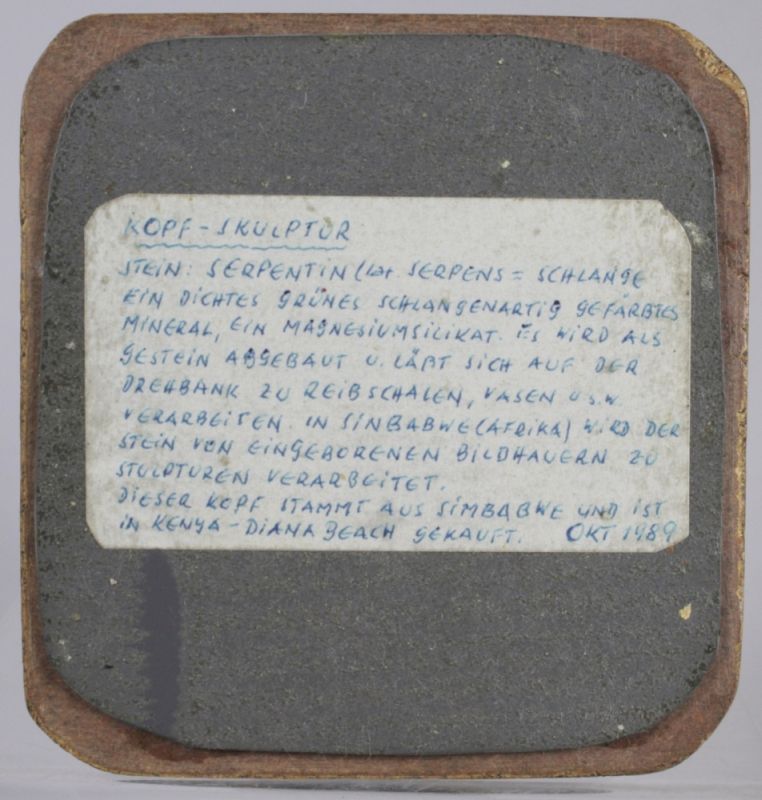 KOPF-SKULPTUR
STEIN: SERPENTIN (lat. SERPENS = SCHLANGE
EIN DICHTES GRÜNES SCHLANGENARTIG GEFÄRBTES
MINERAL, EIN MAGNESIUMSILIKAT. ES WIRD ALS
GESTEIN ABGEBAUT U. LÄßT SICH AUF DER
DREHBANK ZU REIBSCHALEN, VASEN U.S.W
VERARBEITEN. IN SINBABWE (AFRIKA) WIRD DER
STEIN VON EINGEBORENEN BILDHAUERN ZU
STULPTUREN VERARBEITET.
DIESER KOPF STAMMT AUS SIMBABWE UND IST
IN KENYA-DIANA BEACH GEKAUFT. OKT 1989